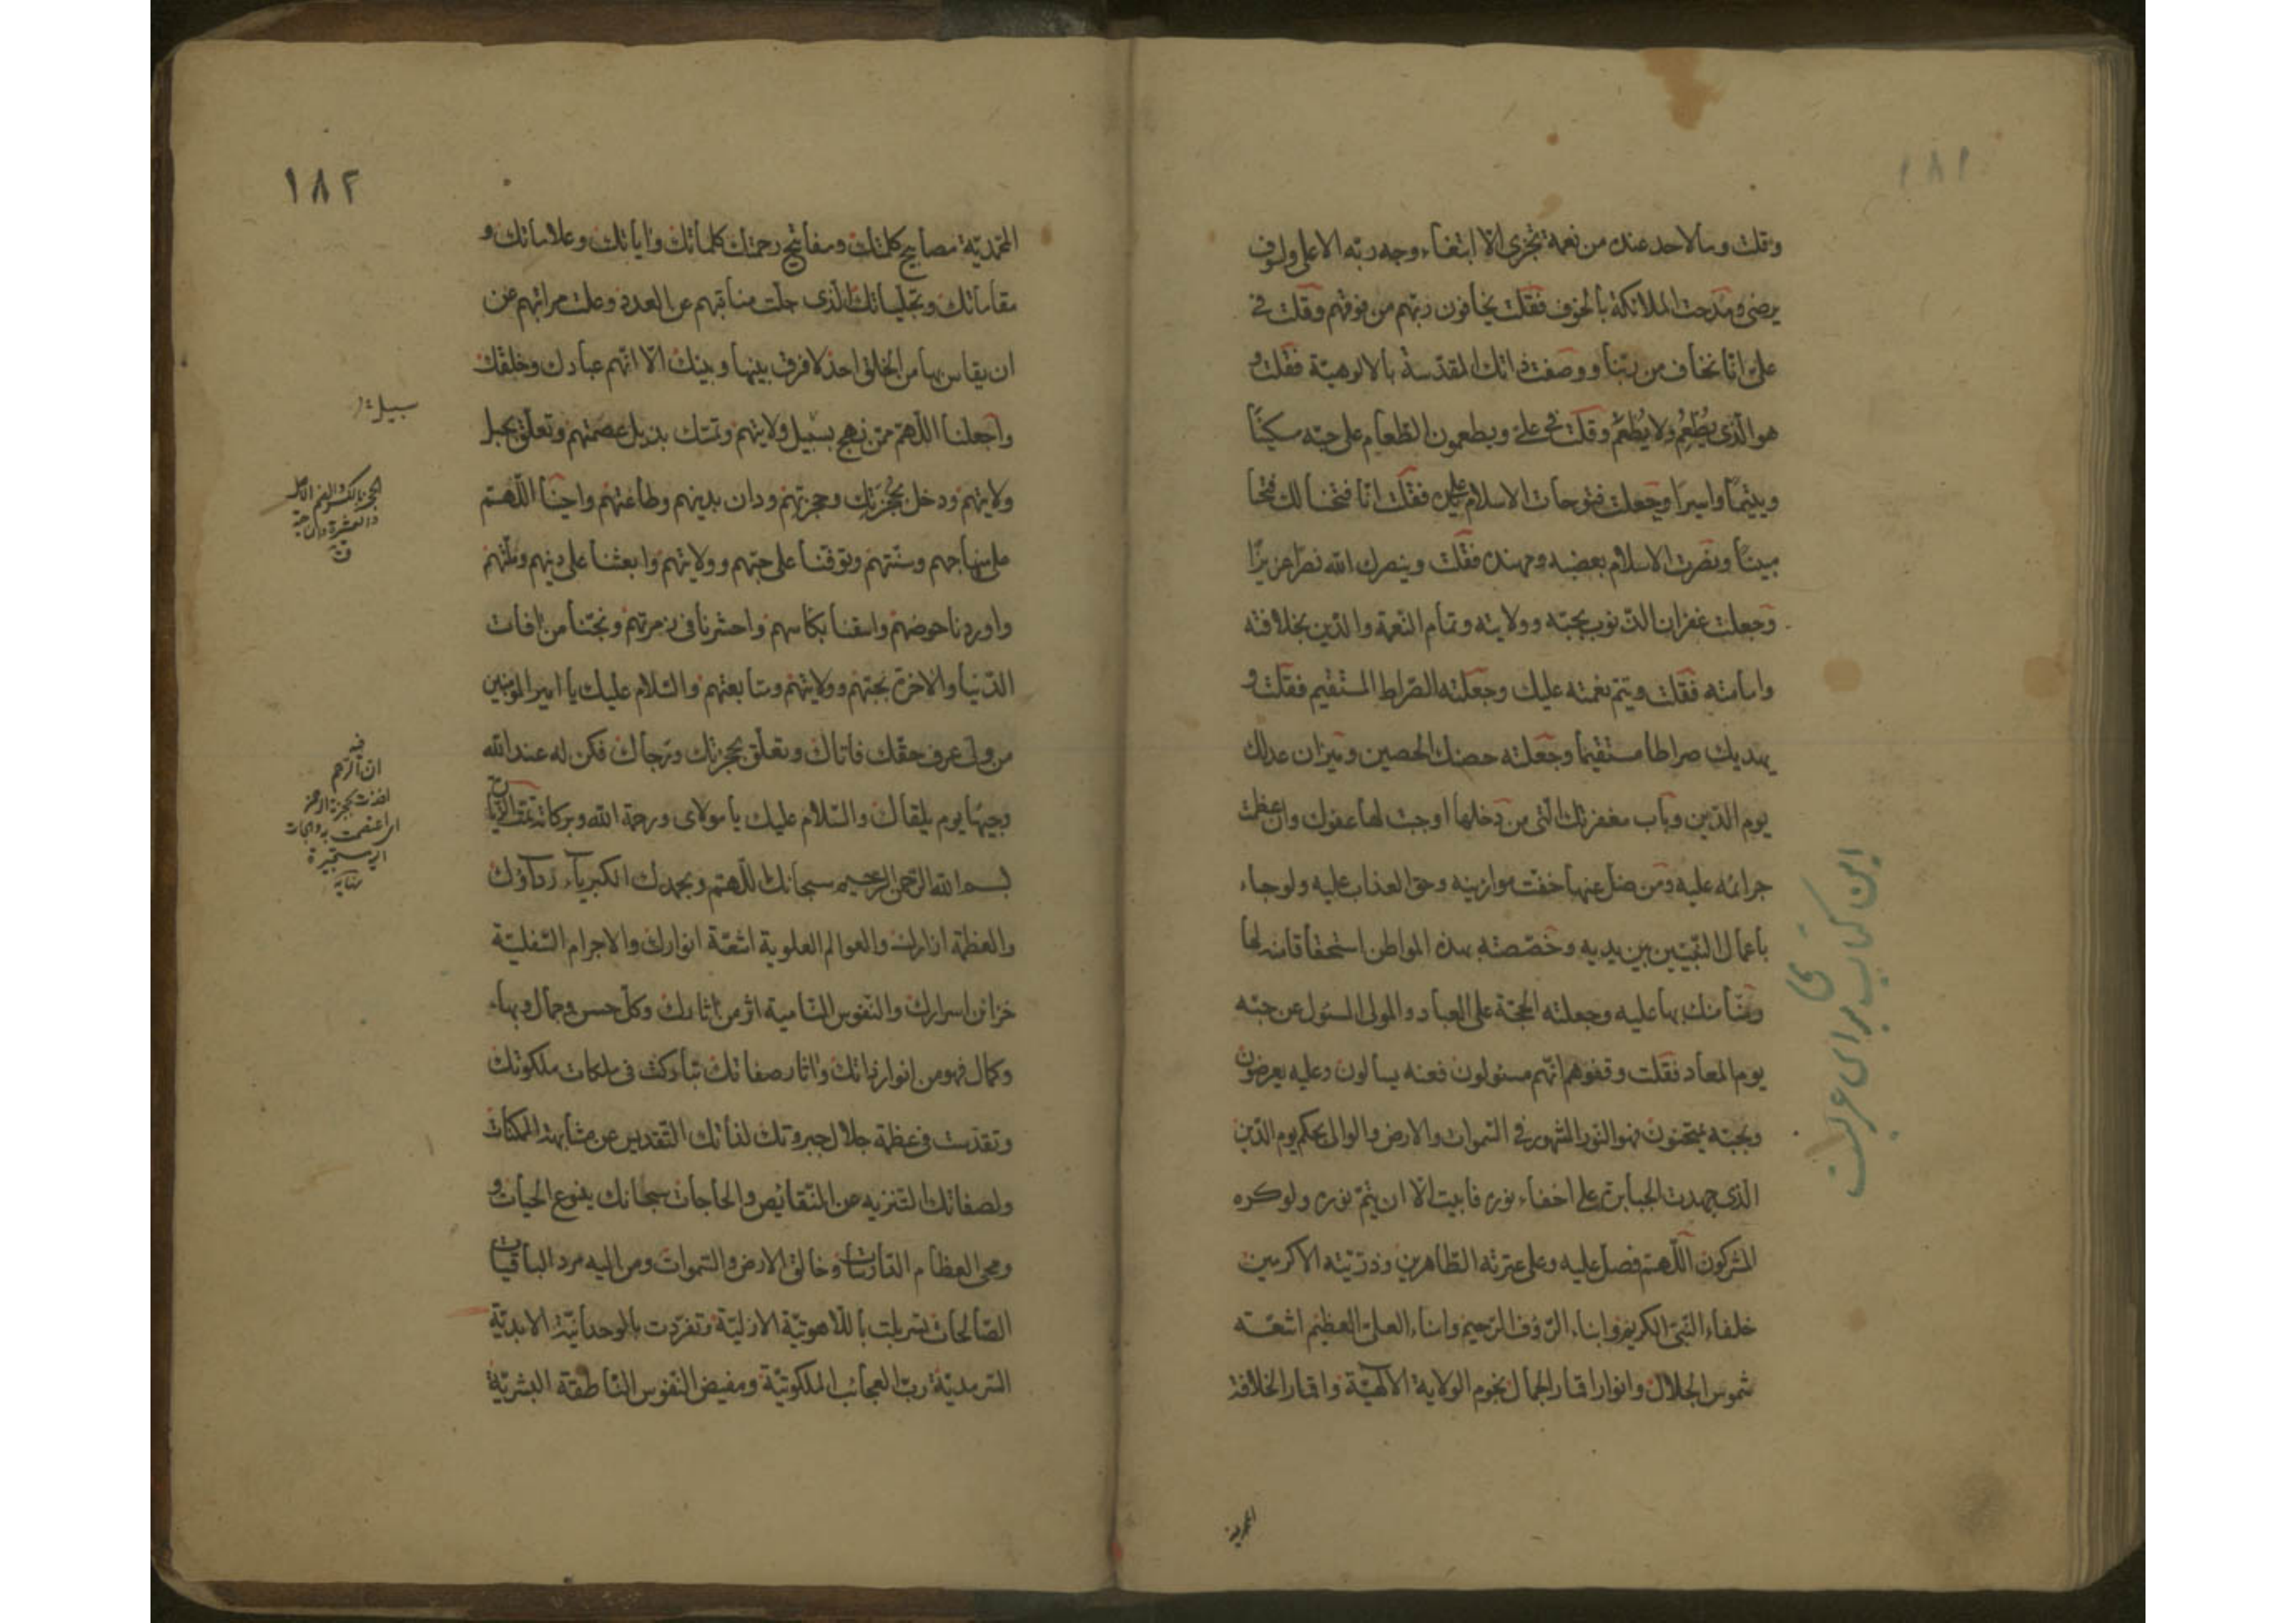 ١٨١
وقلت وما لاحد عنده من نعمة تجزى الّا ابتغاء وجه ربّه الاعلى ولسوف
يرضى ومدحت الملائكة بالخوف فقلت يخافون ربّهم من فوقهم وقلت في
علي انّا نخاف من ربّنا ووصفت ذاتك المقدّسة بالالوهيّة فقلت و
هو الّذى يُطْعِمُ ولا يُطْعَمُ وقلت في علي ويطعمون الطّعام على حبّه مسكينًا
ويتيمًا واسيرًا وجعلت فتوحات الاسلام عليه فقلت انّا فتحنا لك فتحًا
مبينًا ونصرت الاسلام بعضبه ومهنده فقلت وينصرك الله نصرًا عزيزًا
وجعلت غفران الذنوب بحبّه وولايته وتمام النّعمة والدّين بخلافته
وامامته فقلت ويتم نعمته عليك وجعلته الصّراط المستقيم فقلت و
يهديك صراطا مستقيما وجعلته حصنك الحصين وميزان عدلك
يوم الدّين وباب مغفرتك الّتى من دخلها اوجبت لها عفوك وان عظمت
جرائمه عليه ومن ضل عنها خفّت موازينه وحق العذاب عليه ولو جاء
باعمال النّبيّين بين يديه وخصّصته بهذه المواطن استحقاقا منه لها
ومنّا منك بها عليه وجعلته الحجّة على العباد والمولى المسئول عن حبّه
يوم المعاد فقلت وقفوهم انّهم مسئولون فعنه يسألون وعليه يعرضون
وبحبّه يمتحنون فهو النّور المشهور في السّموات والارض والوالى بحكم يوم الدّين
الّذى جهدت الجبابرة على اخفاء نوره فابيت الّا ان يتمّ نوره ولو كره
المشركون اللّهمّ فصل عليه وعلى عترته الطّاهرين وذرّيّته الاكرمين
خلفاء النّبىّ الكريم وابناء الرّؤف الرّحيم وابناء العلىّ العظيم اشعّة
شموس الجلال وانوار اقمار الجمال نجوم الولاية الالهيّة واقمار الخلافة
المحمدية
١٨٢
المحمّديّة مصابيح كلمتك ومفاتيح رحمتك كلماتك واياتك وعلاماتك و
مقاماتك وتجلّياتك الّذى جلّت مناقبهم عن العدد وعلت مراتبهم عن
ان يقاس بها من الخلق احد لا فرق بينها وبينك الّا انّهم عبادك وخلقك
واجعلنا اللّهمّ ممّن نهج بسبيل ولايتهم وتمسّك بذيل عصمتهم وتعلّق بحبل
ولايتهم ودخل بحُجزتك وحجزتهم ودان بدينهم وطاعتهم واحينا اللّهمّ
على منهاجهم وسنّتهم وتوفّنا على حبّهم وولايتهم وابعثنا على دينهم وملّتهم
واوردنا حوضهم واسقنا بكأسهم واحشرنا في زمرتهم ونجّنا من افات
الدّنيا والاخرة بحبّهم وولايتهم ومتابعتهم والسّلام عليك يا امير المؤمنين
من ولى عرف حقّك فاتاك وتعلّق بحجزتك ورجاك فكن له عند الله
وجيهًا يوم يلقاك والسّلام عليك يا مولاى ورحمة الله وبركاته
بسم الله الرّحمن الرّحيم سبحانك اللّهمّ وبحمدك الكبرياء رداؤك
والعظمة ازارك والعوالم العلوية اشعّة انوارك والاجرام السّفليّة
خزائن اسرارك والنّفوس السّامية اثر من اثارك وكلّ حسن وجمال وبهاء
وكمال فهو من انوار ذاتك واثار صفاتك تباركت في ملكات ملكوتك
وتقدّست في عظمة جلال جبروتك لذاتك التّقديس عن مشابهة الممكنات
ولصفاتك التّنزيه عن النّقائص والحاجات سبحانك ينبوع الحيات و
ومحى العظام الدّارسات وخالق الارض والسّموات ومن اليه مرد الباقيات
الصّالحات تسربلت باللّاهوتيّة الازليّة وتفرّدت بالوحدانيّة الابديّة
السّرمديّة ربّ العجائب الملكوتيّة ومفيض النّفوس النّاطقة البشريّة
سبيل